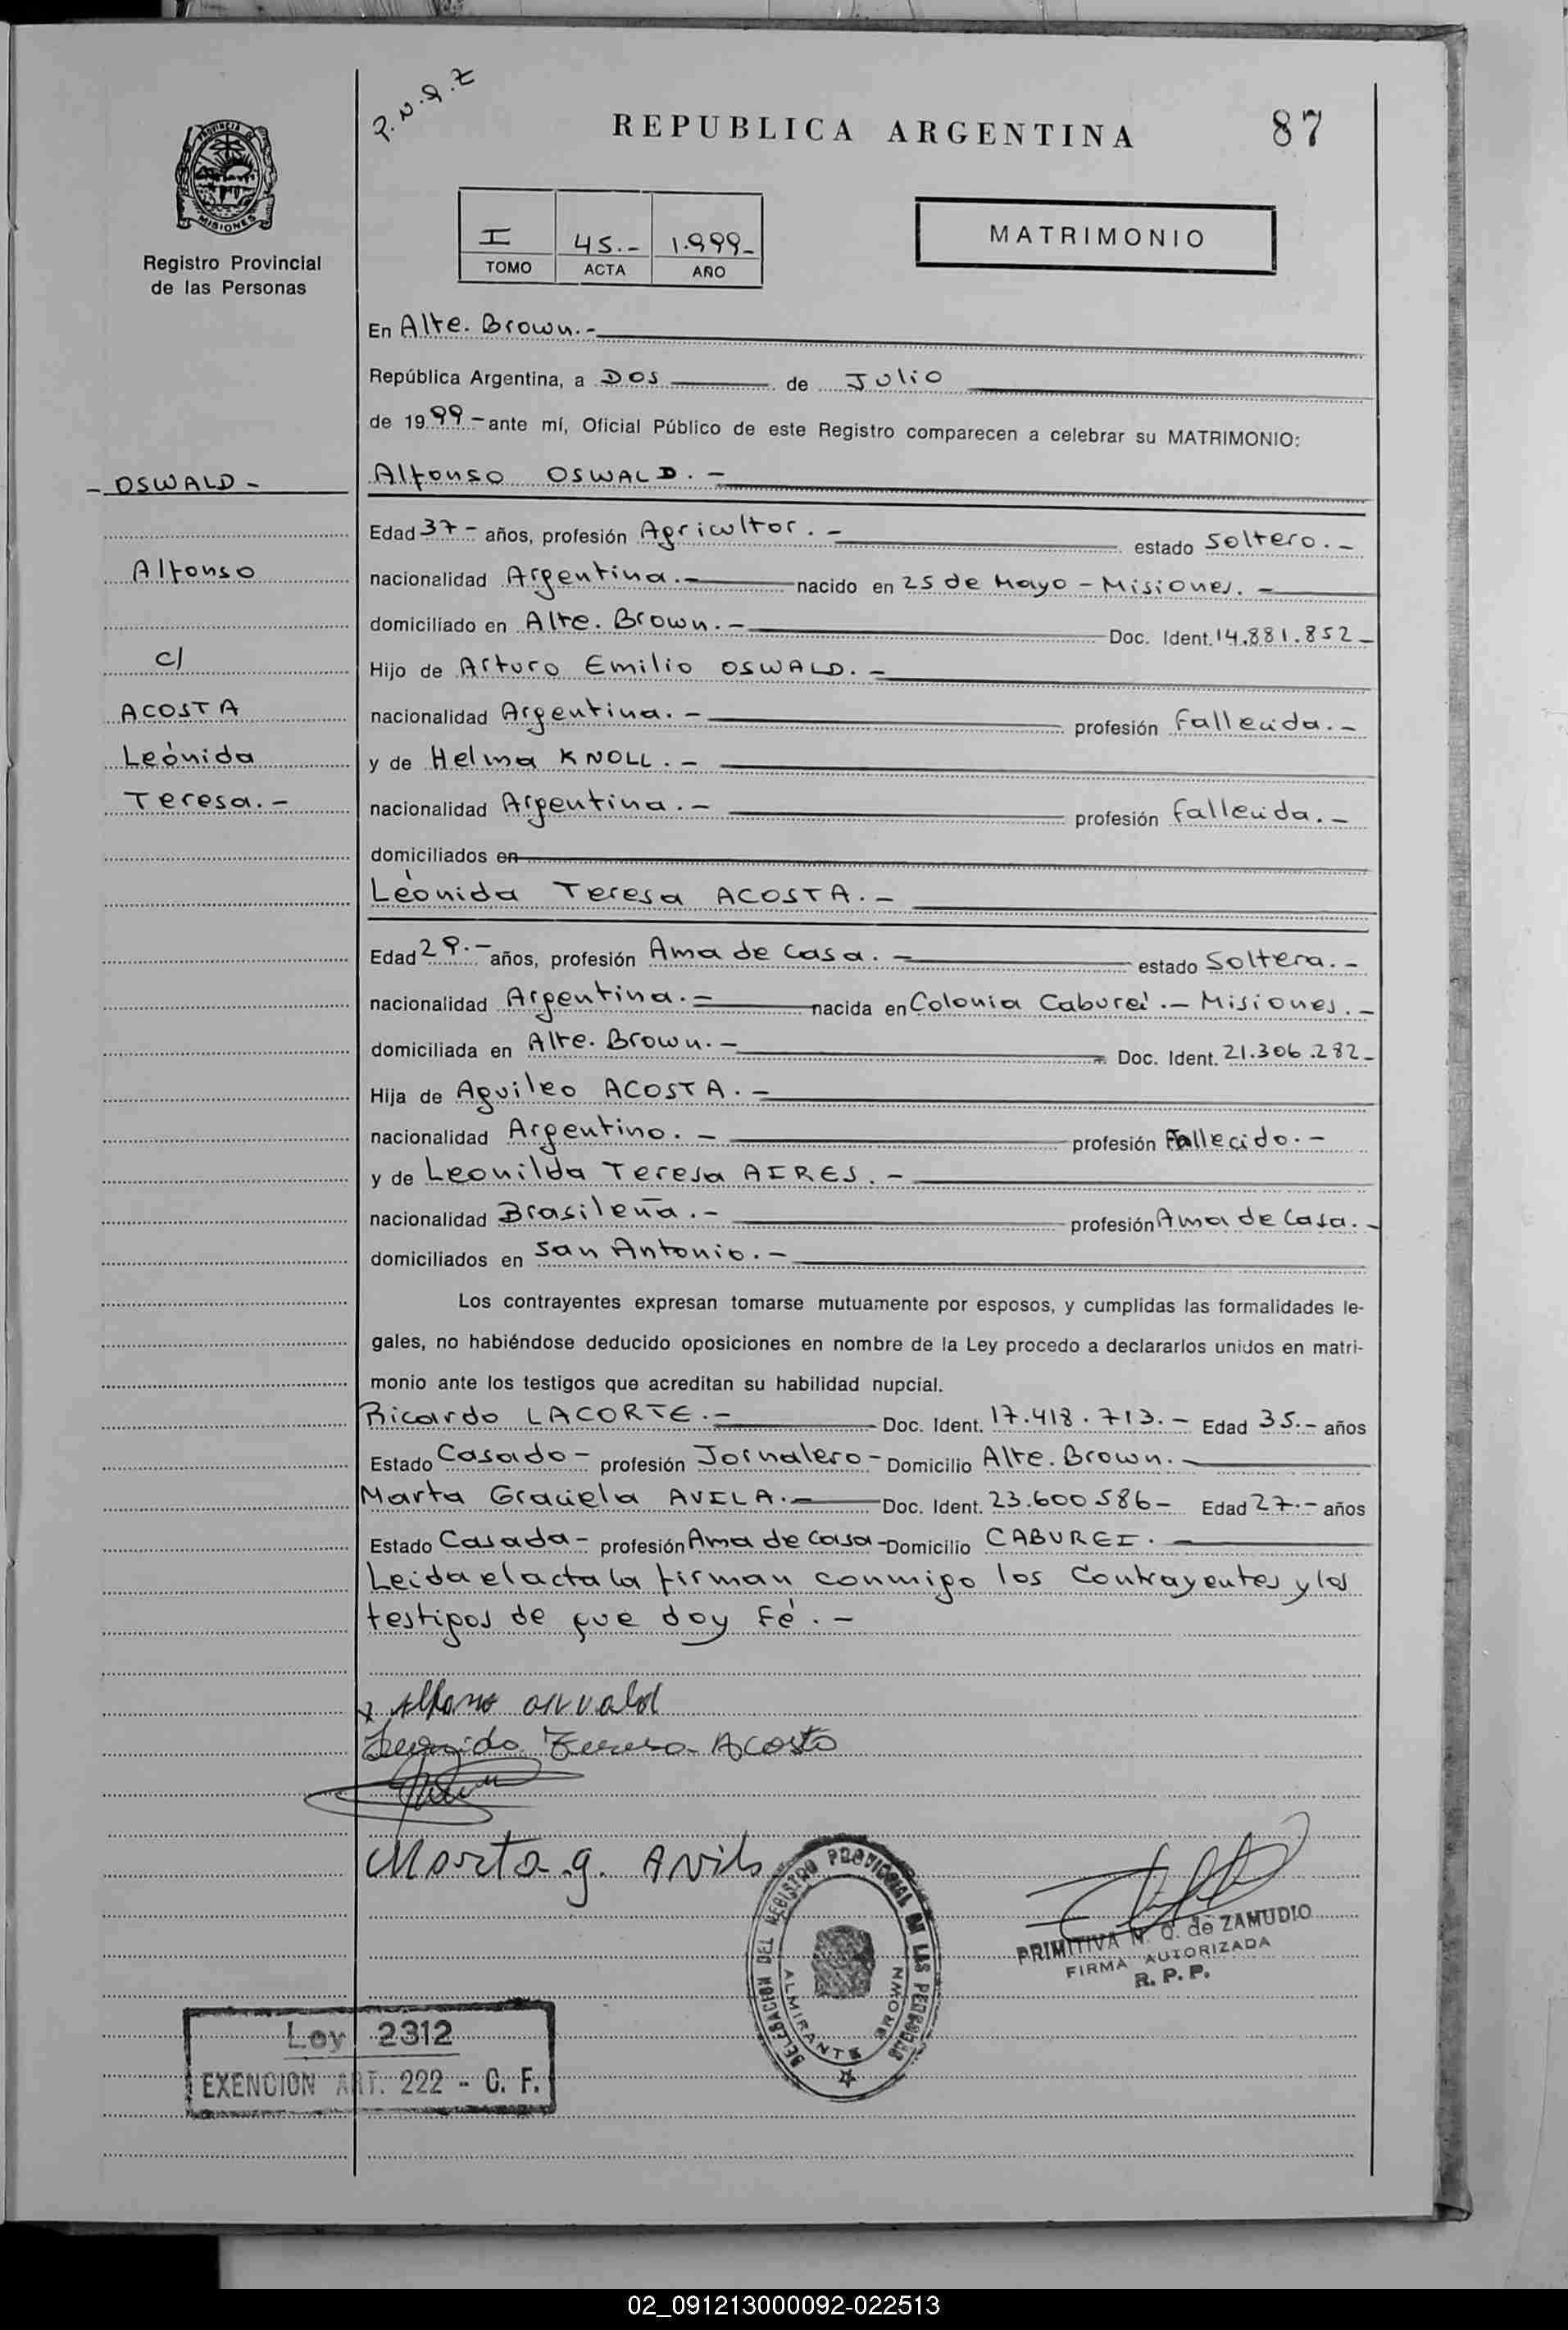 P.N.Q.Z
REPUBLICA ARGENTINA
87
PROVINCIA D
MISIONES
Registro Provincial
de las Personas
I 45.- 1.999-
TOMO ACTA AÑO
MATRIMONIO
En Alte. Brown.-
República Argentina, a DOS de Julio
de 1999- ante mí, Oficial Público de este Registro comparecen a celebrar su MATRIMONIO:
- OSWALD -
Alfonso
c/
ACOSTA
Leónida
Teresa.-
Alfonso OSWALD.-
Edad 37- años, profesión Agricultor.- estado Soltero.-
nacionalidad Argentina.- nacido en 25 de Mayo - Misiones.-
domiciliado en Alte. Brown.- Doc. Ident. 14.881.852-
Hijo de Arturo Emilio OSWALD.-
nacionalidad Argentina.- profesión Fallecida.-
y de Helma KNOLL.-
nacionalidad Argentina.- profesión fallecida.-
domiciliados en
Léonida Teresa ACOSTA.-
Edad 29.- años, profesión Ama de Casa.- estado Soltera.-
nacionalidad Argentina.- nacida en Colonia Caburei.- Misiones.-
domiciliada en Alte. Brown.- Doc. Ident. 21.306.282-
Hija de Aguileo ACOSTA.-
nacionalidad Argentino.- profesión Fallecido.-
y de Leonilda Teresa AIRES.-
nacionalidad Brasileña.- profesión Ama de Casa.-
domiciliados en San Antonio.-
Los contrayentes expresan tomarse mutuamente por esposos, y cumplidas las formalidades le-
gales, no habiéndose deducido oposiciones en nombre de la Ley procedo a declararlos unidos en matri-
monio ante los testigos que acreditan su habilidad nupcial.
Ricardo LACORTE.- Doc. Ident. 17.418.713.- Edad 35.- años
Estado Casado- profesión Jornalero- Domicilio Alte. Brown.-
Marta Graciela AVILA.- Doc. Ident. 23.600586- Edad 27.- años
Estado Casada- profesión Ama de Casa- Domicilio CABUREI.-
Leida el acta la firman conmigo los Contrayentes y los
testigos de que doy Fé.-
x Alfonso oswald
Leonida Teresa Acosta
Marta .g. Avila
DELEGACION DEL REGISTRO PROVINCIAL DE LAS PERSONAS
ALMIRANTE BROWN
PRIMITIVA M. Q. de ZAMUDIO
FIRMA AUTORIZADA
R. P. P.
Ley 2312
EXENCION ART. 222 - C. F.
02_091213000092-022513